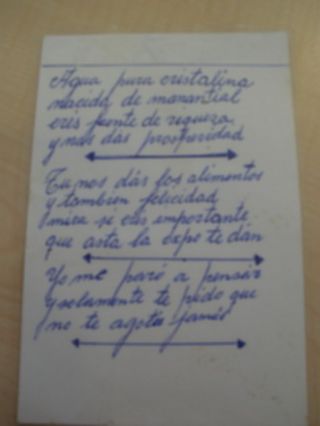 Agua pura cristalina
nacida de manantial
eris fuente de riqueza
y nos das prosperidad
Tu nos dás los alimentos
y tambien felicidad
mira si eris importante
que asta la expo te dán
Yo me paró a pensár
y solamente te pido que
no te agotes jamás